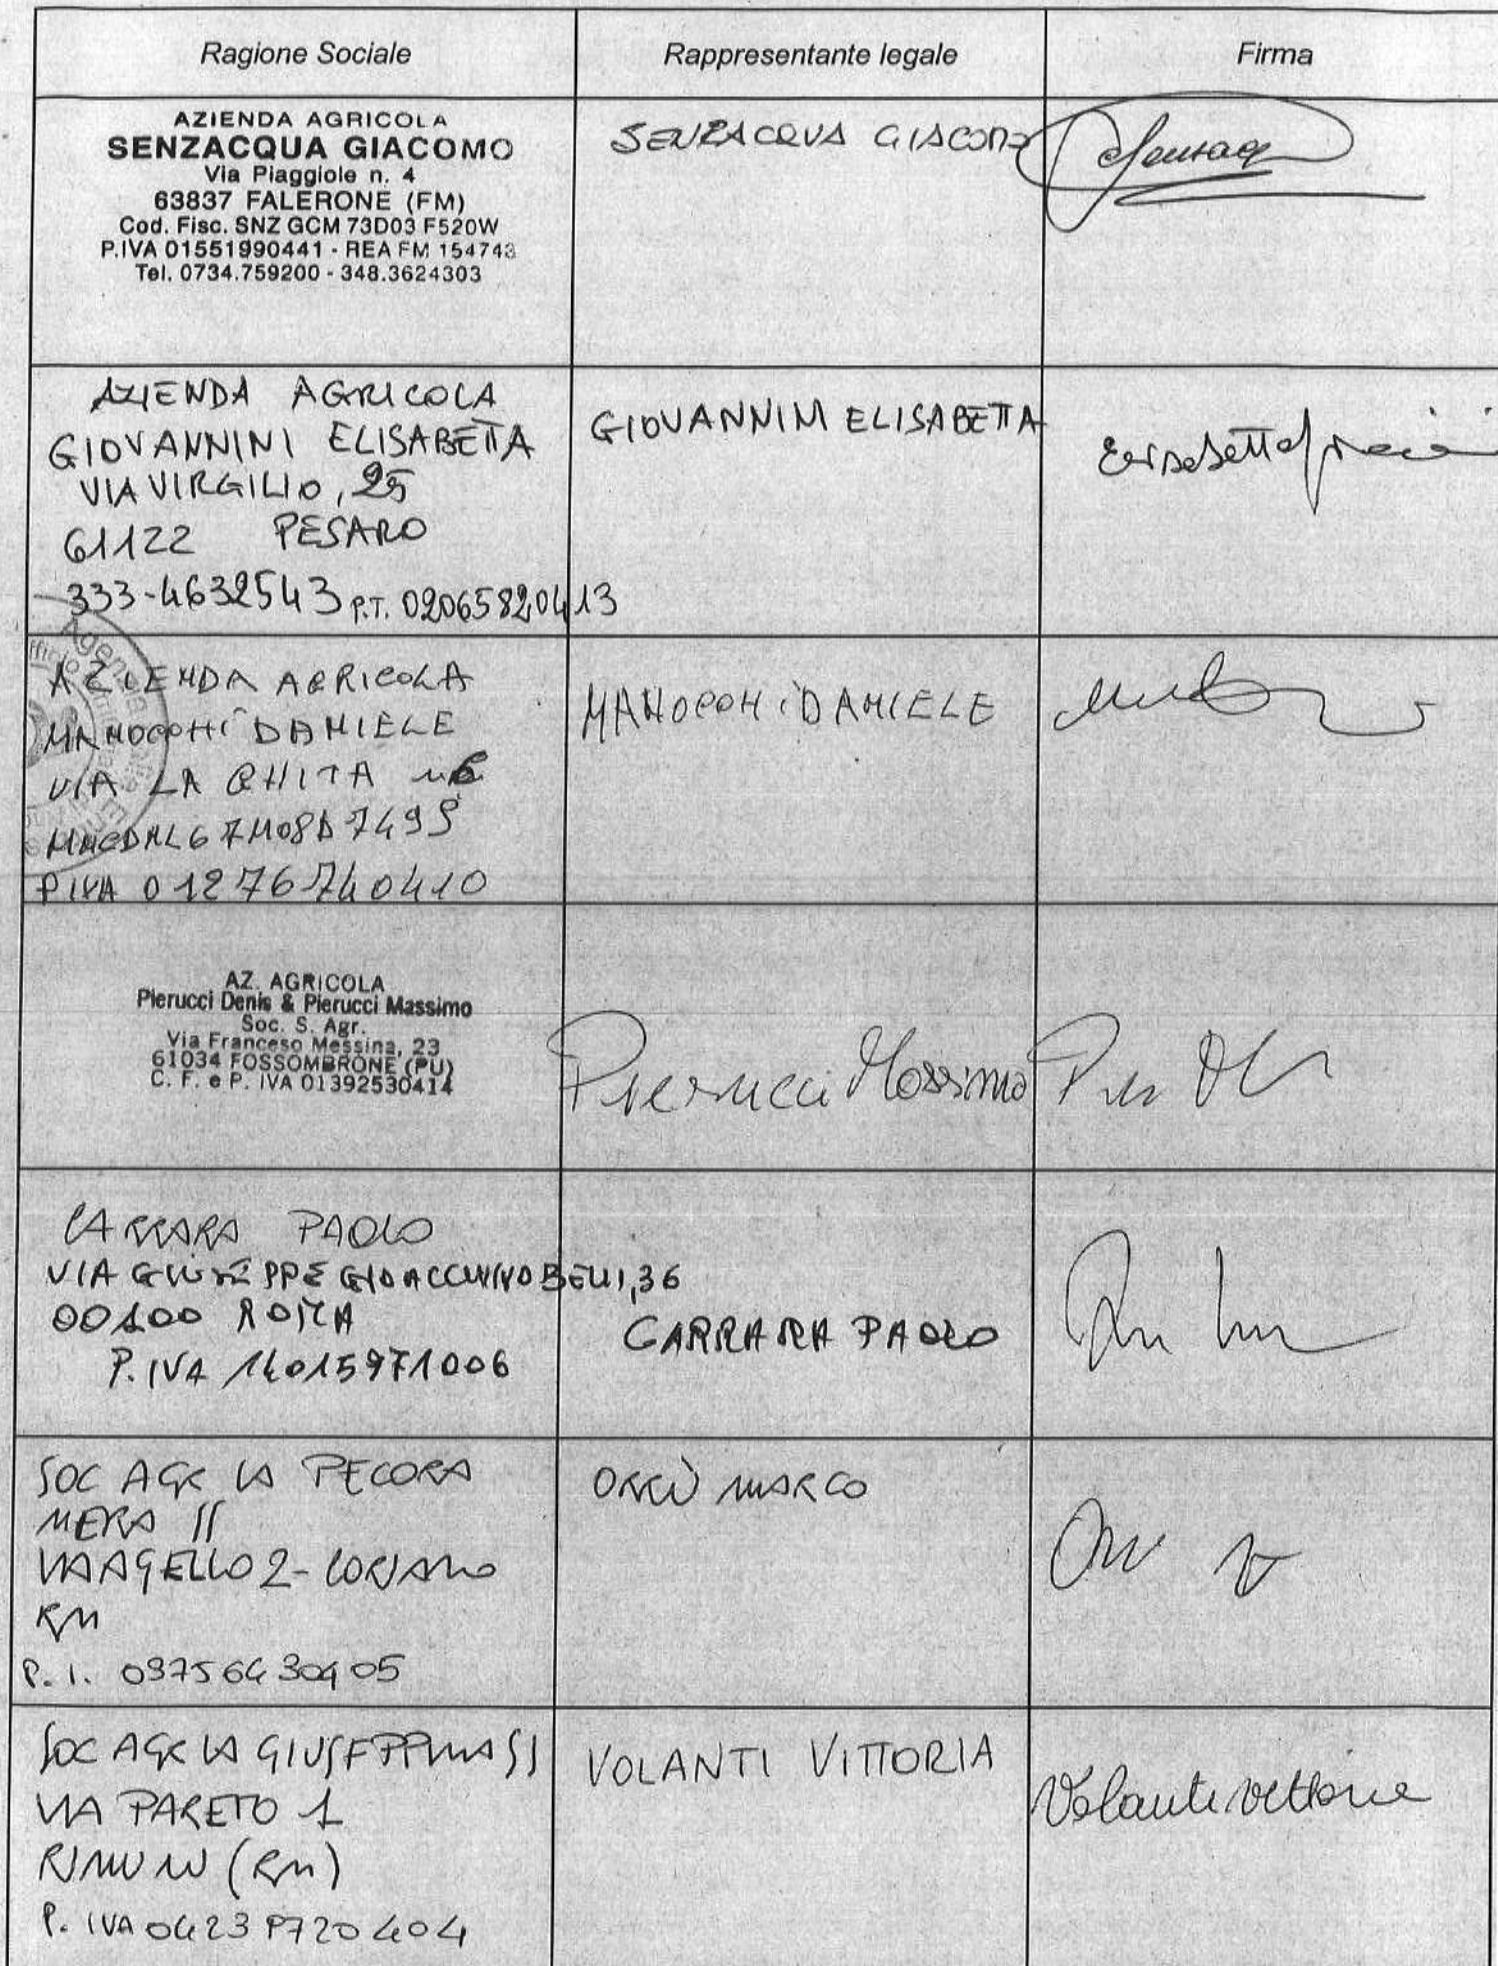 Ragione Sociale
Rappresentante legale
Firma
AZIENDA AGRICOLA
SENZACQUA GIACOMO
Via Piaggiole n. 4
63837 FALERONE (FM)
Cod. Fisc. SNZ GCM 73D03 F520W
P.IVA 01551990441 - REA FM 154743
Tel. 0734.759200 - 348.3624303
SENZACQUA GIACOMO
AZIENDA AGRICOLA
GIOVANNINI ELISABETTA
VIA VIRGILIO, 25
61122 PESARO
333-4632543 P.I. 02065820413
GIOVANNINI ELISABETTA
AZIENDA AGRICOLA
MANOCCHI DANIELE
VIA LA GHITA
P IVA 01276740410
MANOCCHI DANIELE
AZ. AGRICOLA
Pierucci Denis & Pierucci Massimo
Soc. S. Agr.
Via Franceso Messina, 23
61034 FOSSOMBRONE (PU)
C. F. e P. IVA 01392530414
Pierucci Massimo
CARRARA PAOLO
VIA GIUSEPPE GIOACCHINO BELLI, 36
00100 ROMA
P. IVA 14015971006
CARRARA PAOLO
SOC AGR LA PECORA
NERA SS
VIA AGELLO 2 - CORIANO
RN
P. I.
MARCO
SOC AGR LA GIUSEPPINA SS
VIA PARETO 1
RIMINI (RN)
P. IVA
VOLANTI VITTORIA
Volanti Vittoria